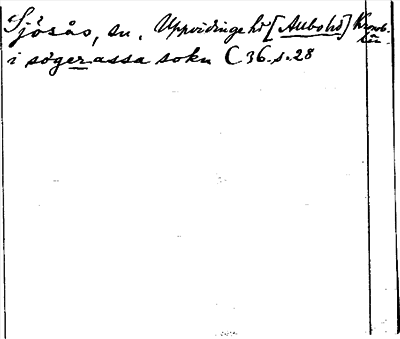 Sjösås, sn. Uppvidinge hd [Allbo hd] Kronob. län
i sögerassa sokn C 36. s. 28